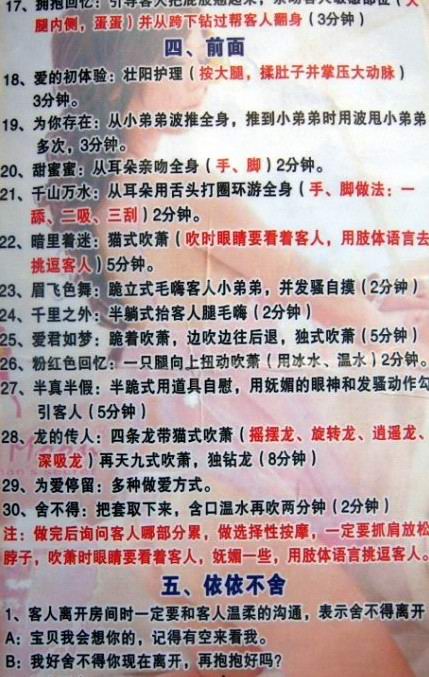 17、拥抱回忆：引导客人把屁股翘起来，亲吻客人敏感部位（大
腿内侧，蛋蛋）并从跨下钻过帮客人翻身（3分钟）
四、前面
18、爱的初体验：壮阳护理（按大腿，揉肚子并掌压大动脉）
3分钟。
19、为你存在：从小弟弟波推全身，推到小弟弟时用波甩小弟弟
多次，3分钟。
20、甜蜜蜜：从耳朵亲吻全身（手、脚）2分钟。
21、千山万水：从耳朵用舌头打圈环游全身（手、脚做法：一
舔、二吸、三刮）2分钟。
22、暗里着迷：猫式吹萧（吹时眼睛要看着客人，用肢体语言去
挑逗客人）5分钟。
23、眉飞色舞：跪立式毛嗨客人小弟弟，并发骚自摸（2分钟）
24、千里之外：半躺式抬客人腿毛嗨（2分钟）
25、爱君如梦：跪着吹萧，边吹边往后退，独式吹萧（5分钟）
26、粉红色回忆：一只腿向上扭动吹萧（用冰水、温水）2分钟。
27、半真半假：半跪式用道具自慰，用妩媚的眼神和发骚动作勾
引客人（5分钟）
28、龙的传人：四条龙带猫式吹萧（摇摆龙、旋转龙、逍遥龙、
深吸龙）再天九式吹萧，独钻龙（8分钟）
29、为爱停留：多种做爱方式。
30、舍不得：把套取下来，含口温水再吹两分钟（2分钟）
注：做完后询问客人哪部分累，做选择性按摩，一定要抓肩放松
脖子，吹萧时眼睛要看着客人，妩媚一些，用肢体语言挑逗客人。
五、依依不舍
1、客人离开房间时一定要和客人温柔的沟通，表示舍不得离开
A：宝贝我会想你的，记得有空来看我。
B：我好舍不得你现在离开，再抱抱好吗？